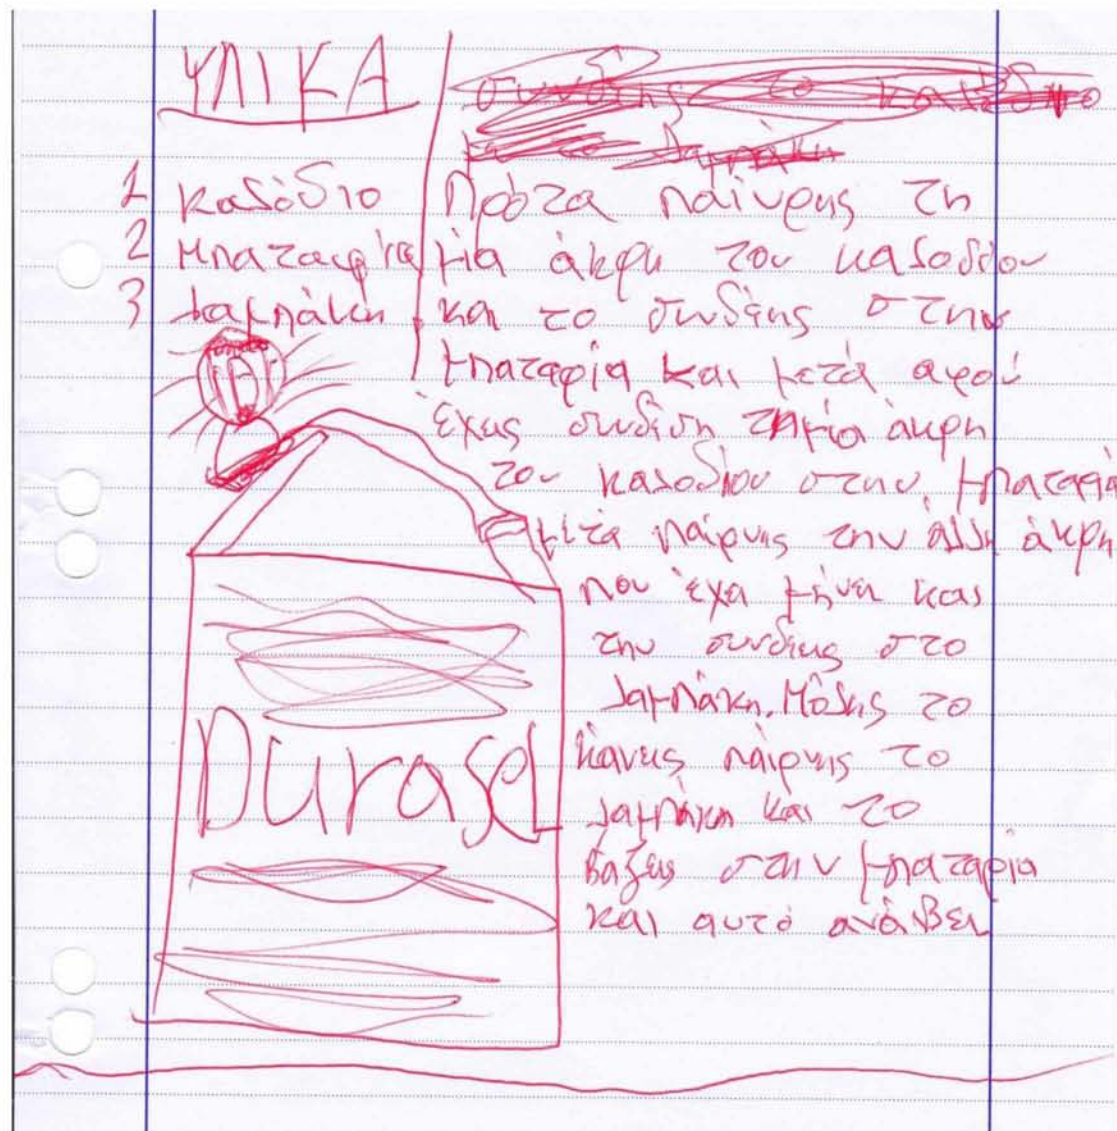 ΥΛΙΚΑ
1 καλόδιο
2 μπαταρία
3 λαμπάκη
συνδέης το καλόδιο
λαμπάκη
Πρότα παίνρης τη
μία άκρη του καλοδίου
και το συνδέης στην
μπαταρία και μετά αφού
έχεις συνδέση τη μία άκρη
του καλοδίου στην μπαταρία
μετά παίρνης την άλλη άκρη
που έχει μήνει και
την συνδέης στο
λαμπάκη. Μόλης το
κάνεις παίρνης το
λαμπάκη και το
βάζεις στην μπαταρία
και αυτό ανάβει
Durasel